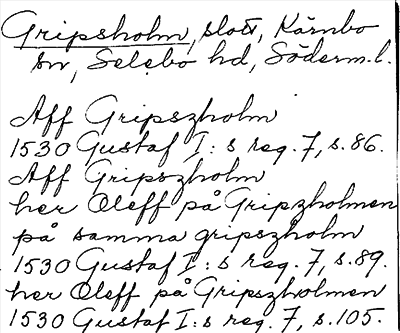 Gripsholm, slott, Kärnbo
sn, Selebo hd, Söderm. l.
Aff Gripszholm
1530 Gustaf I:s reg. 7, s. 86.
Aff Gripszholm
her Oleff på Gripzholmen
på samma gripszholm
1530 Gustaf I:s reg. 7, s. 89.
her Oleff på Gripszholmen
1530 Gustaf I:s reg. 7, s. 105.